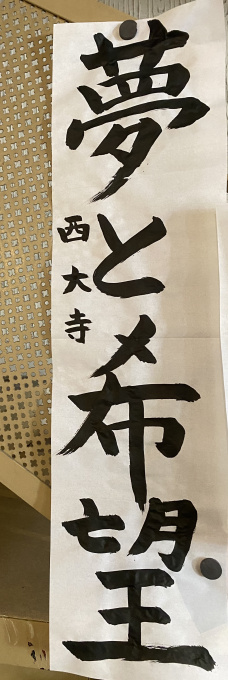 夢と希望
西大寺